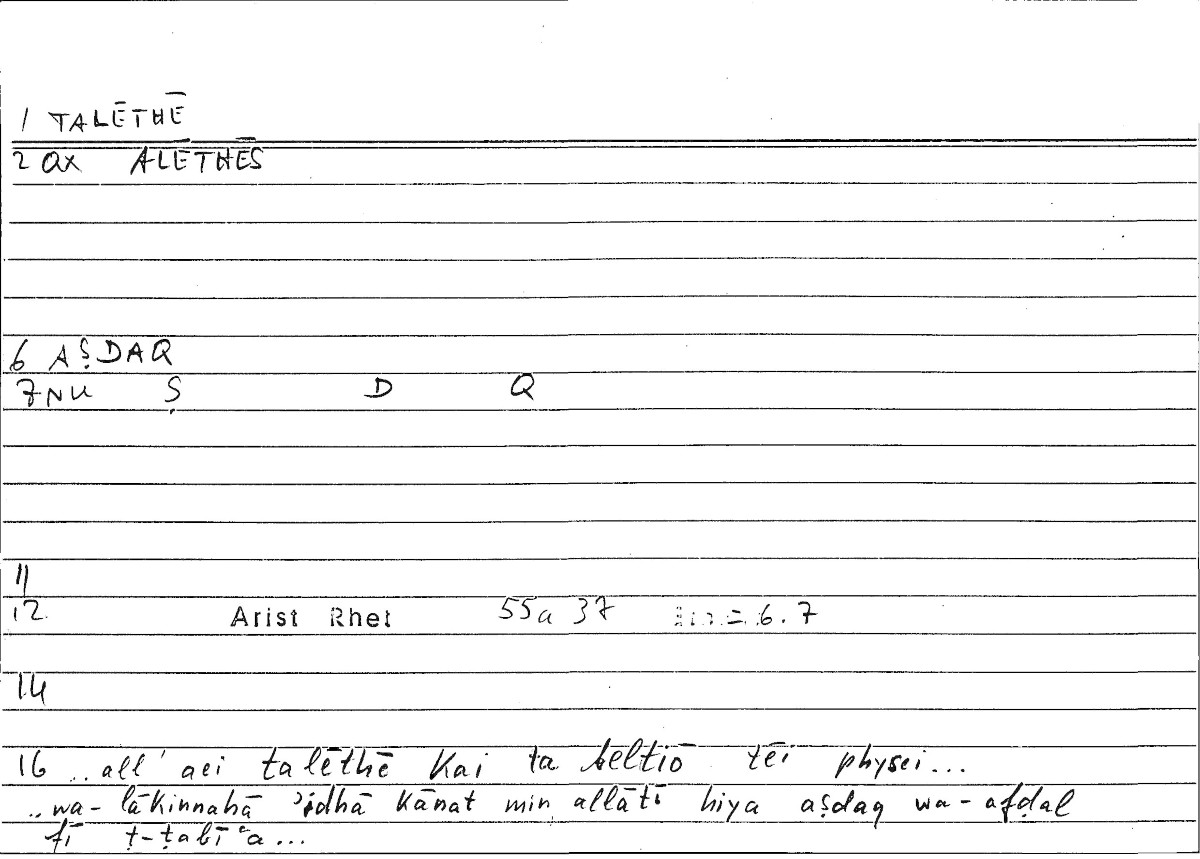 1 TALĒTHĒ
2 QX ALĒTHĒS
6 AṢDAQ
7 NU Ṣ D Q
11
12 Arist Rhet 55a 37 6.7
14
16 ..all' aei talēthē kai ta beltiō tēi physei...
..wa-lākinnahā 'idhā kānat min allātī hiya aṣdaq wa-afḍal
fī ṭ-ṭabī‘a...